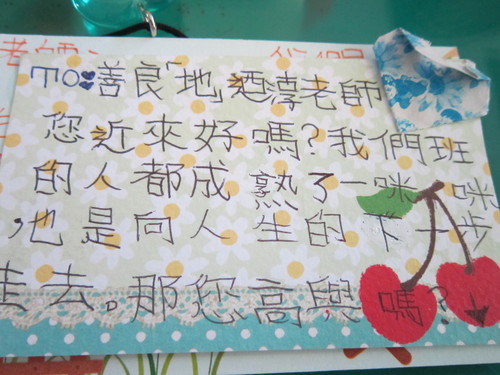 老師
TO:善良「地」酒淳老師
您近來好嗎?我們班
的人都成熟了一咪咪
,也是向人生的下一步
走去。那您高興嗎?